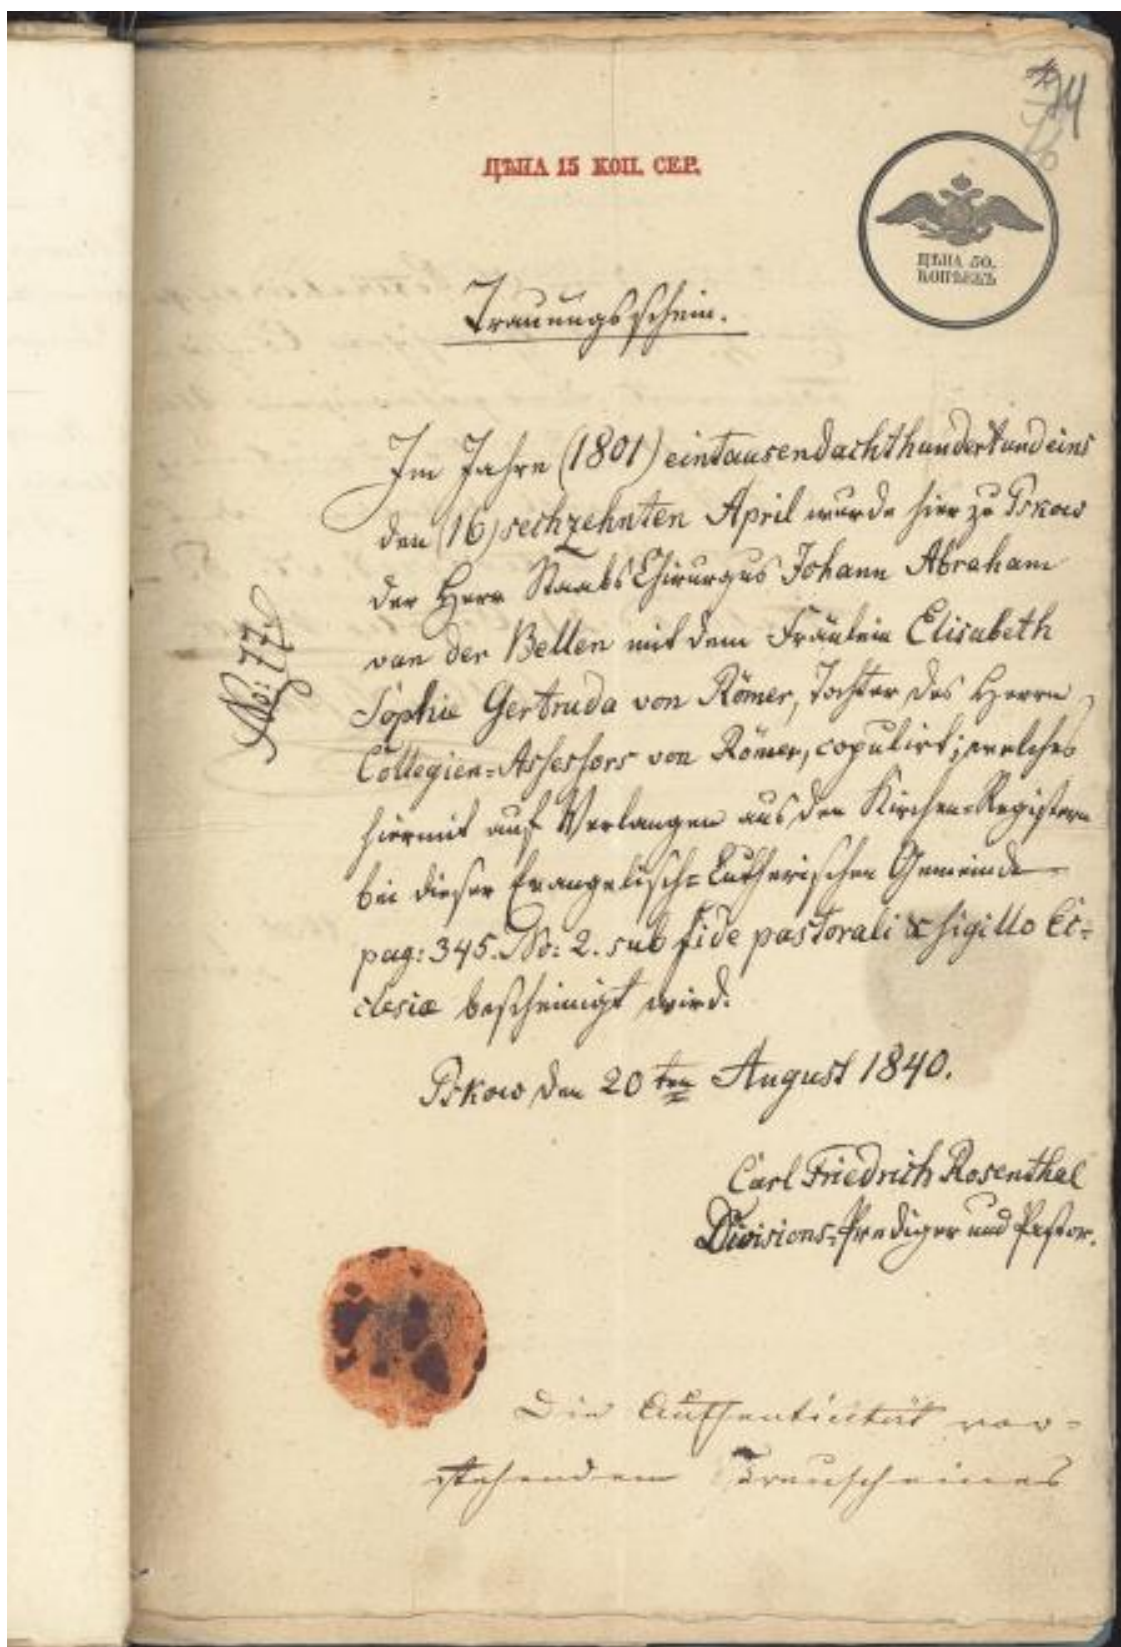 24
ЦѢНА 15 КОП. СЕР.
ЦѢНА 50.
КОПѢЕКЪ
Trauungsschein.
Im Jahre (1801) eintausendachthundertundeins
den (16) sechzehnten April wurde hier zu Pskow
der Herr StaabsChirurgus Johann Abraham
van der Bellen mit dem Fräulein Elisabeth
Sophie Gertruda von Römer, Tochter des Herrn
Collegien=Assessors von Römer, copulirt; welches
hiermit auf Verlangen aus den Kirchen=Registern
bei dieser Evangelisch=Lutherischen Gemeinde
pag: 345. No: 2. sub fide pastorali & sigillo Ec=
clesiæ bescheinigt wird.
No: 77.
Pskow den 20ten August 1840.
Carl Friedrich Rosenthal
Divisions=Prediger und Pastor.
Die Authenticität vor=
stehenden Trauscheines